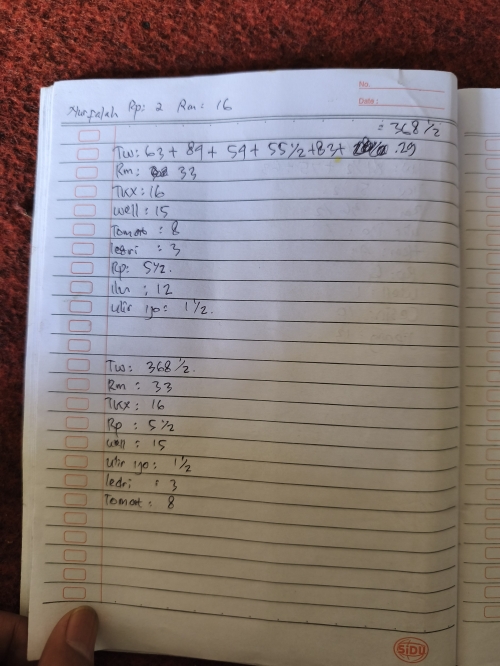 No.
Date :
Nurfalah Rp: 2 Rm: 16
= 368 1/2
Tw: 63 + 89 + 59 + 55 1/2 + 83 + .29
Rm: 33
Tkx: 16
well: 15
Tomat : 8
ledri : 3
Rp: 5 1/2.
: 12
ulir ijo: 1 1/2.
Tw: 368 1/2.
Rm : 33
Tkx : 16
Rp : 5 1/2
well : 15
ulir ijo: 1 1/2
ledri : 3
Tomat : 8
SiDU